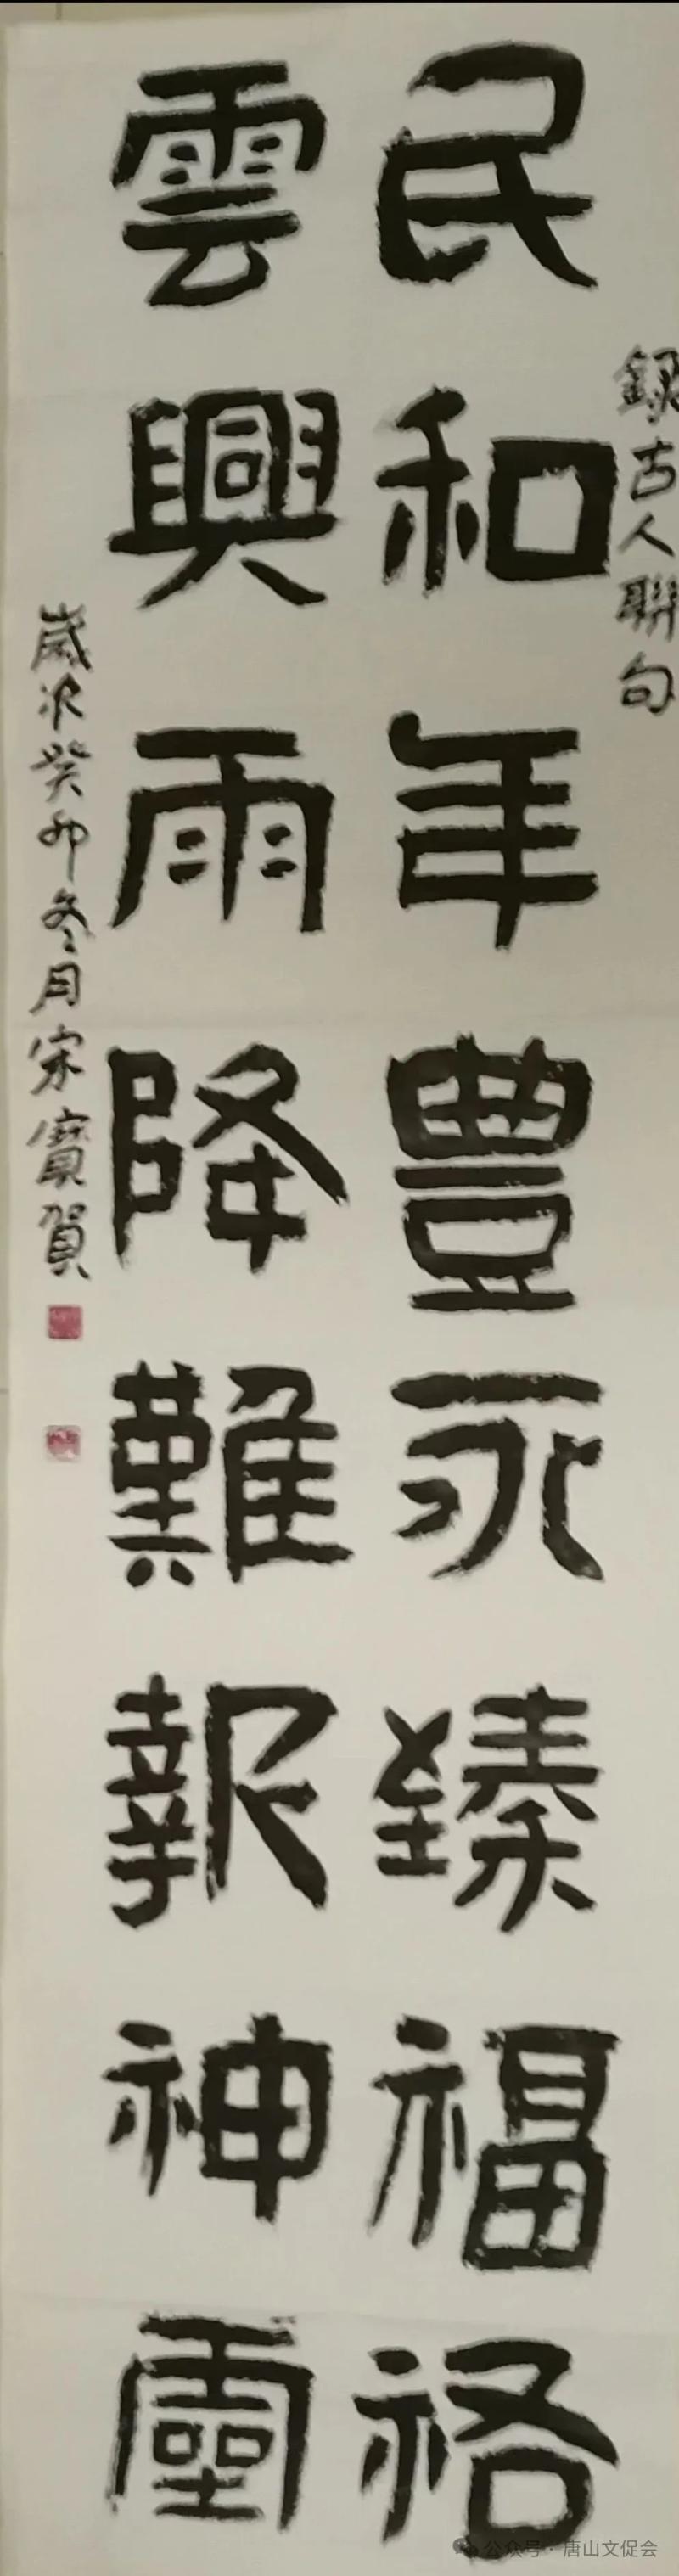 錄古人聯句
民和年豐永臻福
雲興雨降難報神靈
歲次癸卯冬月宋寶賀
公众号 · 唐山文促会